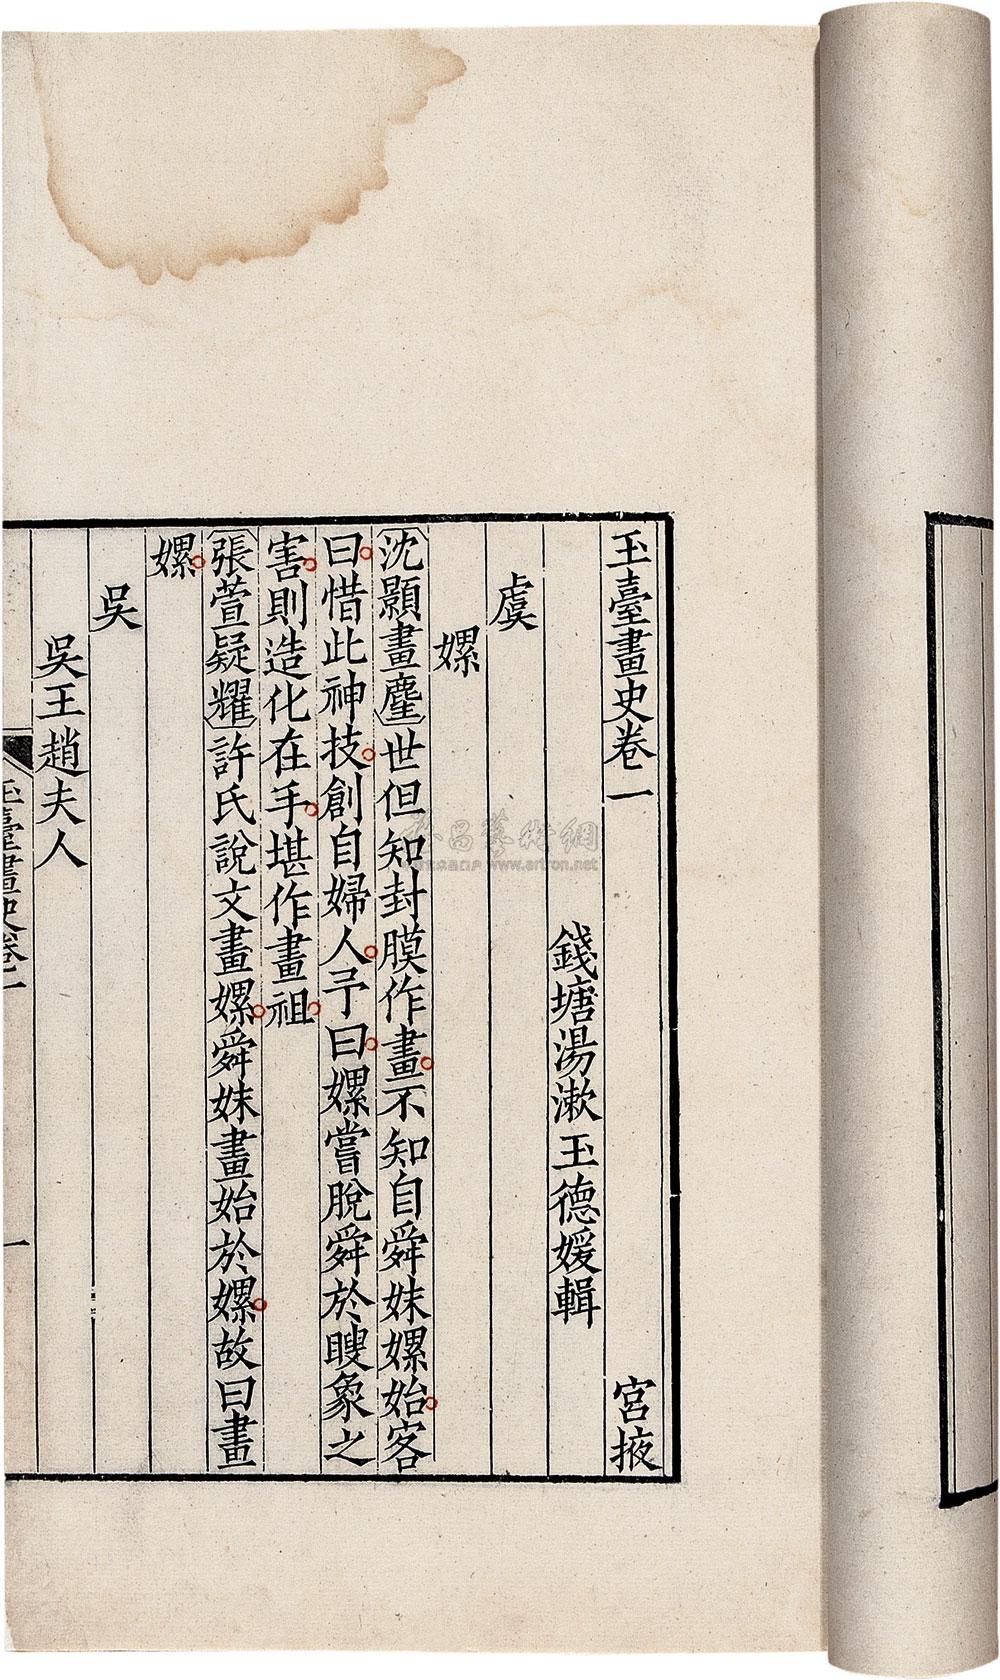 玉臺畫史卷一 宮掖
錢塘湯漱玉德媛輯
虞
嫘
沈顥畫麈世但知封膜作畫不知自舜妹嫘始客
曰惜此神技創自婦人予曰嫘嘗脫舜於瞍象之
害則造化在手堪作畫祖
張萱疑耀許氏說文畫嫘舜妹畫始於嫘故曰畫
嫘
吳
吳王趙夫人
玉臺畫史卷一 一
www.artron.net